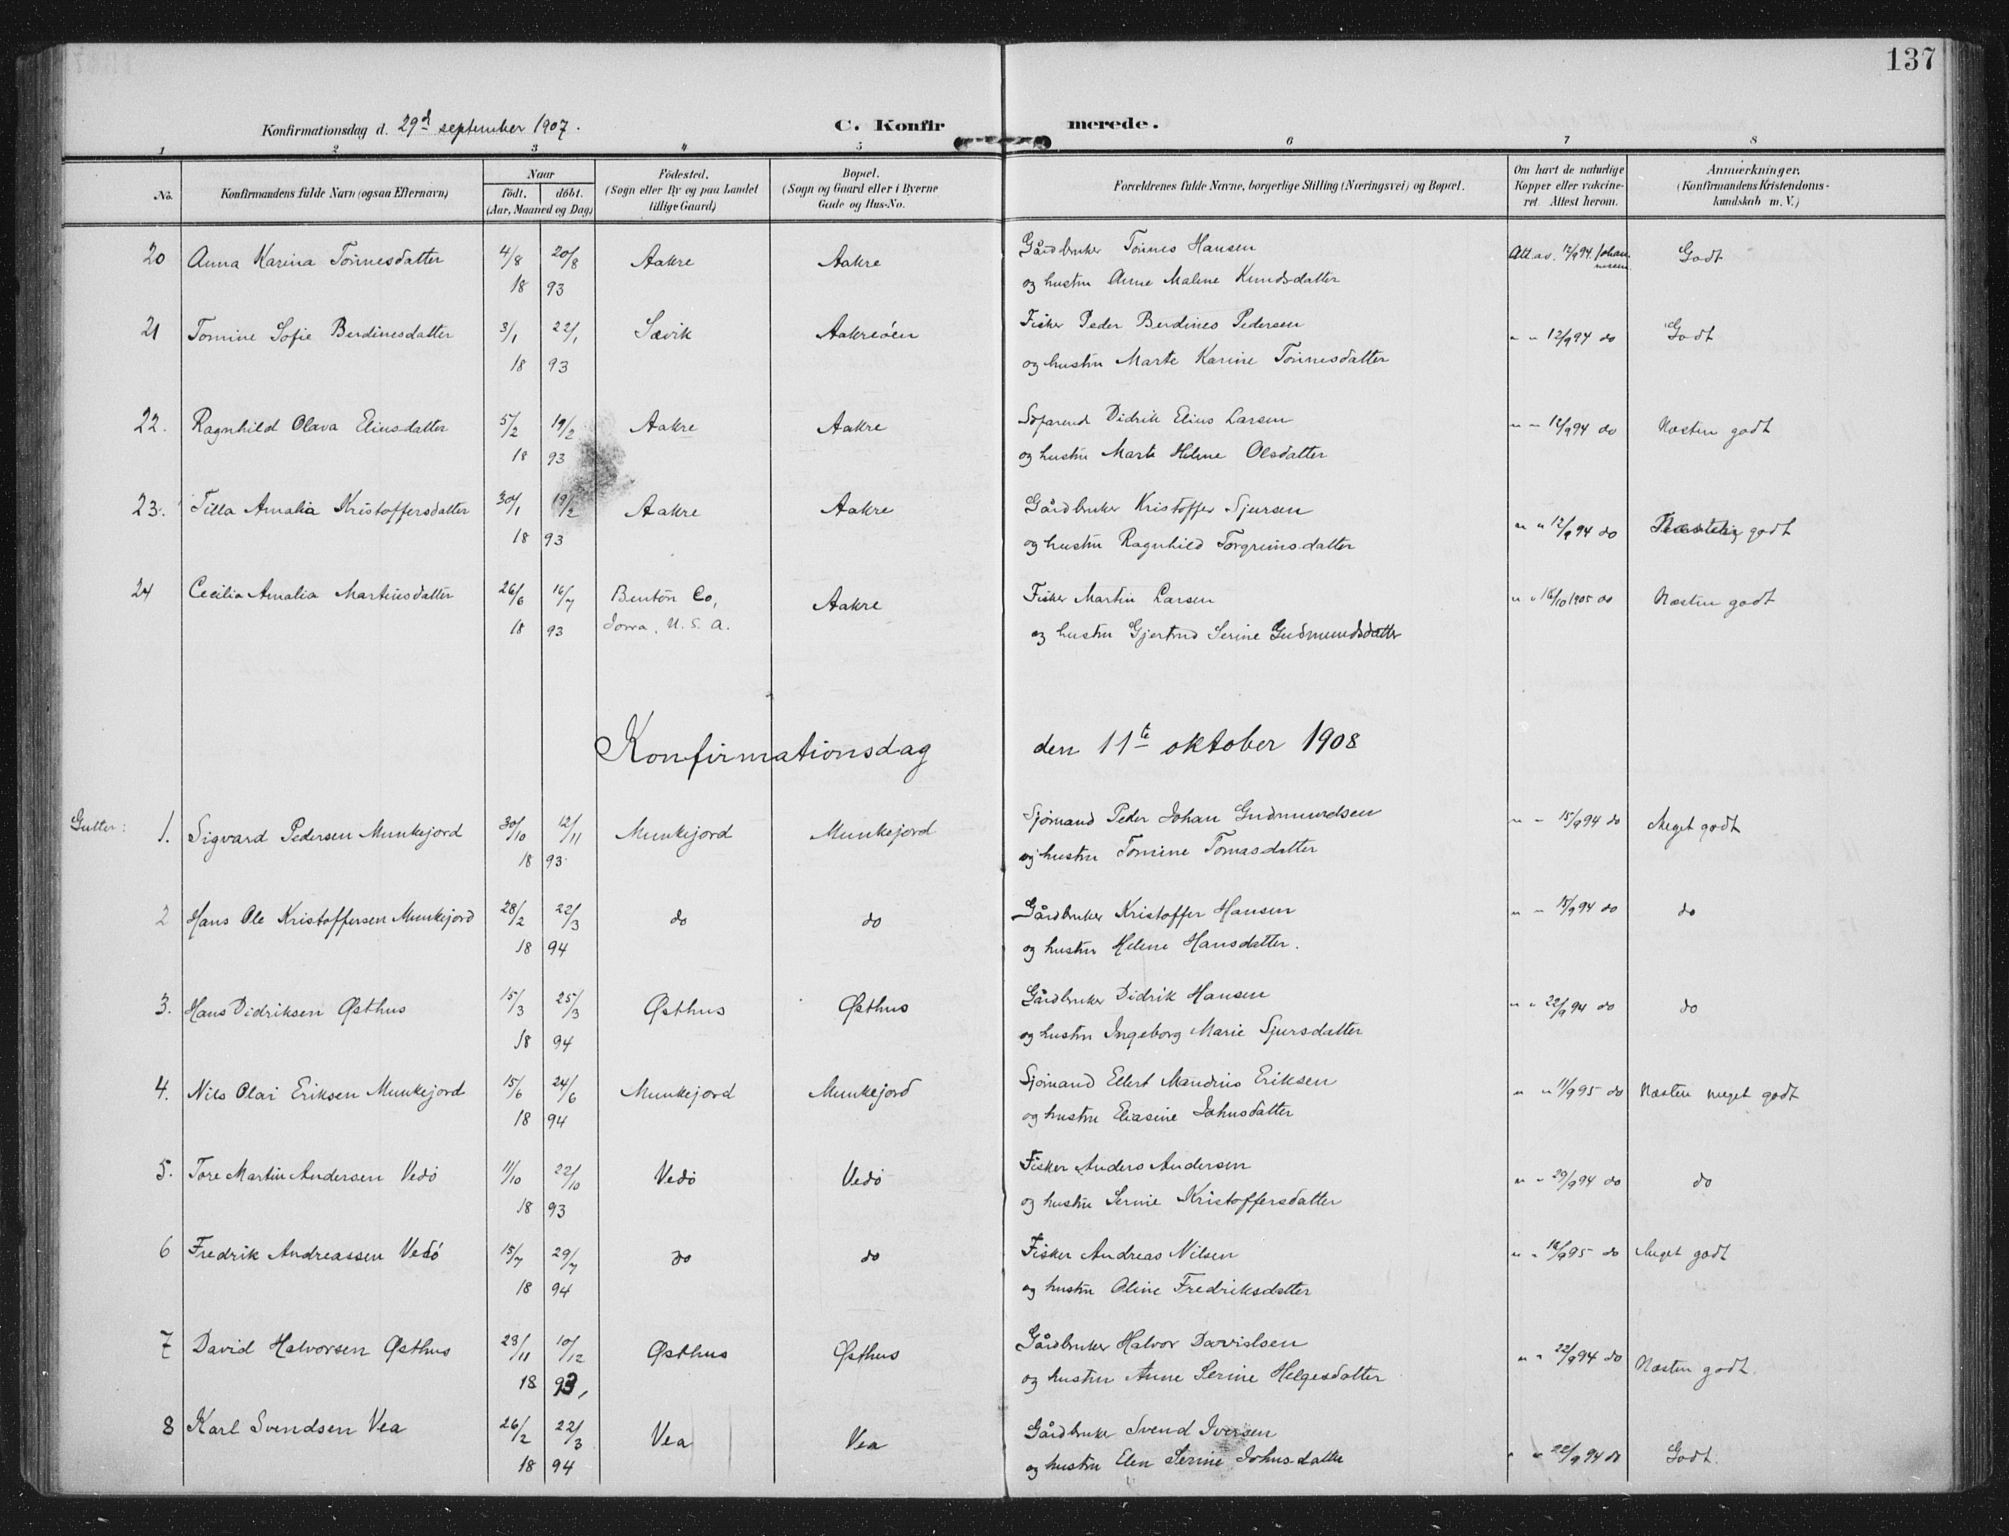 137
Konfirmationsdag d. 29d september 1907. C. Konfirmerede.
1 2 3 4 5 6 7 8
No. Konfirmandens fulde Navn (ogsaa Efternavn) Naar født. døbt. (Aar, Maaned og Dag) Fødested. (Sogn eller By og paa Landet tillige Gaard) Bopæl. (Sogn og Gaard eller i Byerne Gade og Hus-No. Forældrenes fulde Navne, borgerlige Stilling (Næringsvei) og Bopæl. Om havt de naturlige Kopper eller vaccineret. Attest herom. Anmærkninger. (Konfirmandens Kristendomskundskab m. V.)
20 Anna Karina Tønnesdatter 4/8 20/8 Aakre Aakre Gårdbruker Tønnes Hansen Att. av. 12/9 94 Godt
18 93 og hustru Anne Malene Knudsdatter
21 Tomine Sofie Berdinesdatter 3/1 22/1 Sævik Aakreøen Fisker Peder Berdines Pedersen " " 12/9 94 do Godt
18 93 og hustru Marte Karine Tönnesdatter
22. Ragnhild Olava Eliusdatter 5/2 19/2 Aakre Aakre Sjøfarend Didrik Elius Larsen " " 12/9 94 do Næsten godt
18 93 og hustru Marte Helene Olsdatter
23. Tilla Amalia Kristoffersdatter 30/1 19/2 Aakre Aakre Gårdbruker Kristoffer Sjursen " " 12/9 94 do godt
18 93 og hustru Ragnhild Torgrimsdatter
24 Cecilia Amalia Martinsdatter 26/6 16/7 Benton Co, Aakre Fisker Martin Larsen " " 16/10 1905 do Næsten godt
18 93 Iowa, U. S. A. og hustru Gjertrud Serine Gudmundsdatter
Konfirmationsdag den 11te oktober 1908
Gutter: 1. Sigvard Pedersen Munkejord 30/10 12/11 Munkejord Munkejord Sjømand Peder Johan Gudmundsen " " 15/9 94 do Meget godt
18 93 og hustru Tomine Tomasdatter
2 Hans Ole Kristoffersen Munkejord 28/2 22/3 do do Gårdbruker Kristoffer Hansen " " 15/9 94 do do
18 94 og hustru Helene Hansdatter.
3. Hans Didriksen Østhus 15/3 25/3 Østhus Østhus Gårdbruker Didrik Hansen " " 22/9 94 do do
18 94 og hustru Ingeborg Marie Sjursdatter
4. Nils Olai Eriksen Munkejord 15/6 24/6 Munkejord Munkejord Sjømand Ellert Mandrius Eriksen " " 11/9 95 do Næsten meget godt
18 94 og hustru Eliasine Johnsdatter
5. Tore Martin Andersen Vedø 11/10 22/10 Vedö Vedö Fisker Anders Andersen " " 29/9 94 do do
18 93 og hustru Serine Kristoffersdatter
6 Fredrik Andreassen Vedö 15/7 29/7 do do Fisker Andreas Nilsen " " 18/9 95 do Meget godt
18 94 og hustru Oline Fredriksdatter
7 David Halvorsen Østhus 23/11 10/12 Østhus Østhus Gårdbruker Halvor Davidsen " " 22/9 94 do Næsten godt.
18 93, og hustru Anne Serine Helgesdatter
8 Karl Svendsen Vea 26/2 22/3 Vea Vea Gårdbruker Svend Iversen " " 22/9 94 do Godt.
18 94 og hustru Elen Serine Johnsdatter